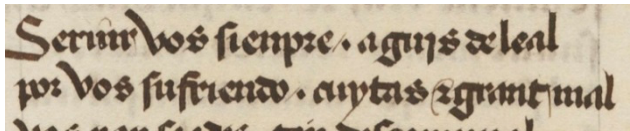 Seruir vos sienpre · a guijs de leal
por vos sufriendo · cuytas ⁊ grant mal